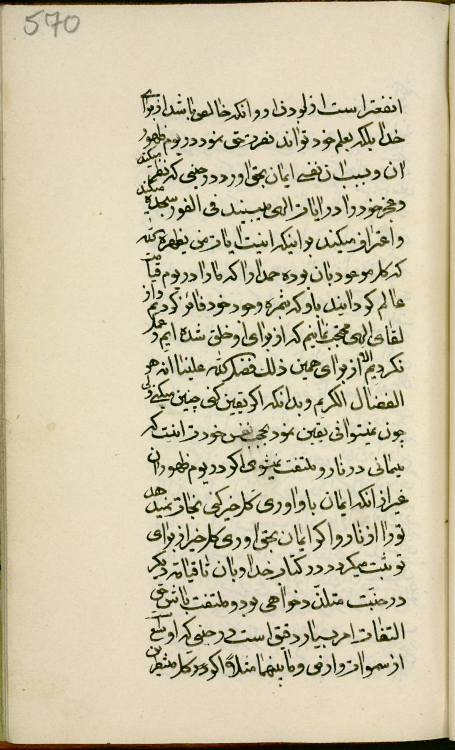 570
انفع تر است از لو دون او و انکه خالص باشد از برای
خدا بلکه بعلم خود تواند نفر حتی نمود در یوم ظهور
ان و بسبب ان نفسی ایمان بحق اورد در حینی که نظر میکند
و عجز خود را در ایات الهی میبیند فی الفور سجده میکند
و اعتراف میکند بر اینکه اینست ایات من یظهره الله
که کل موعود بان بوده حمد او را که ما را در یوم قیامت
عالم گردانید باو که بثمره وجود خود فائز گردیم و از
لقای الهی محتجب نمانیم که از برای او خلق شده ایم و عمل
نکردیم الا از برای همین ذلک فضل الله علینا انه هو
الفضال الکریم و بدانکه اگر یقین کنی چنین میکنی ولی
چون نمیتوانی یقین نمود بحجب نفس خود اینست که
میمانی در نار و ملتفت نمیشوی اگر در یوم ظهور ان
غیر از انکه ایمان باو اوری کل خیر کنی نجات نمیدهد
تو را از نار و اگر ایمان بحق اوری کل خیر از برای
تو ثبت میگردد در کتاب خدا و بان تا قیامت دیگر
در جنت متلذذ خواهی بود و ملتفت باش حق
التفات امر بسیار دقیق است در حینی که اوسع
از سموات و ارض و ما بینهما مثلا اگر کل منتظرین